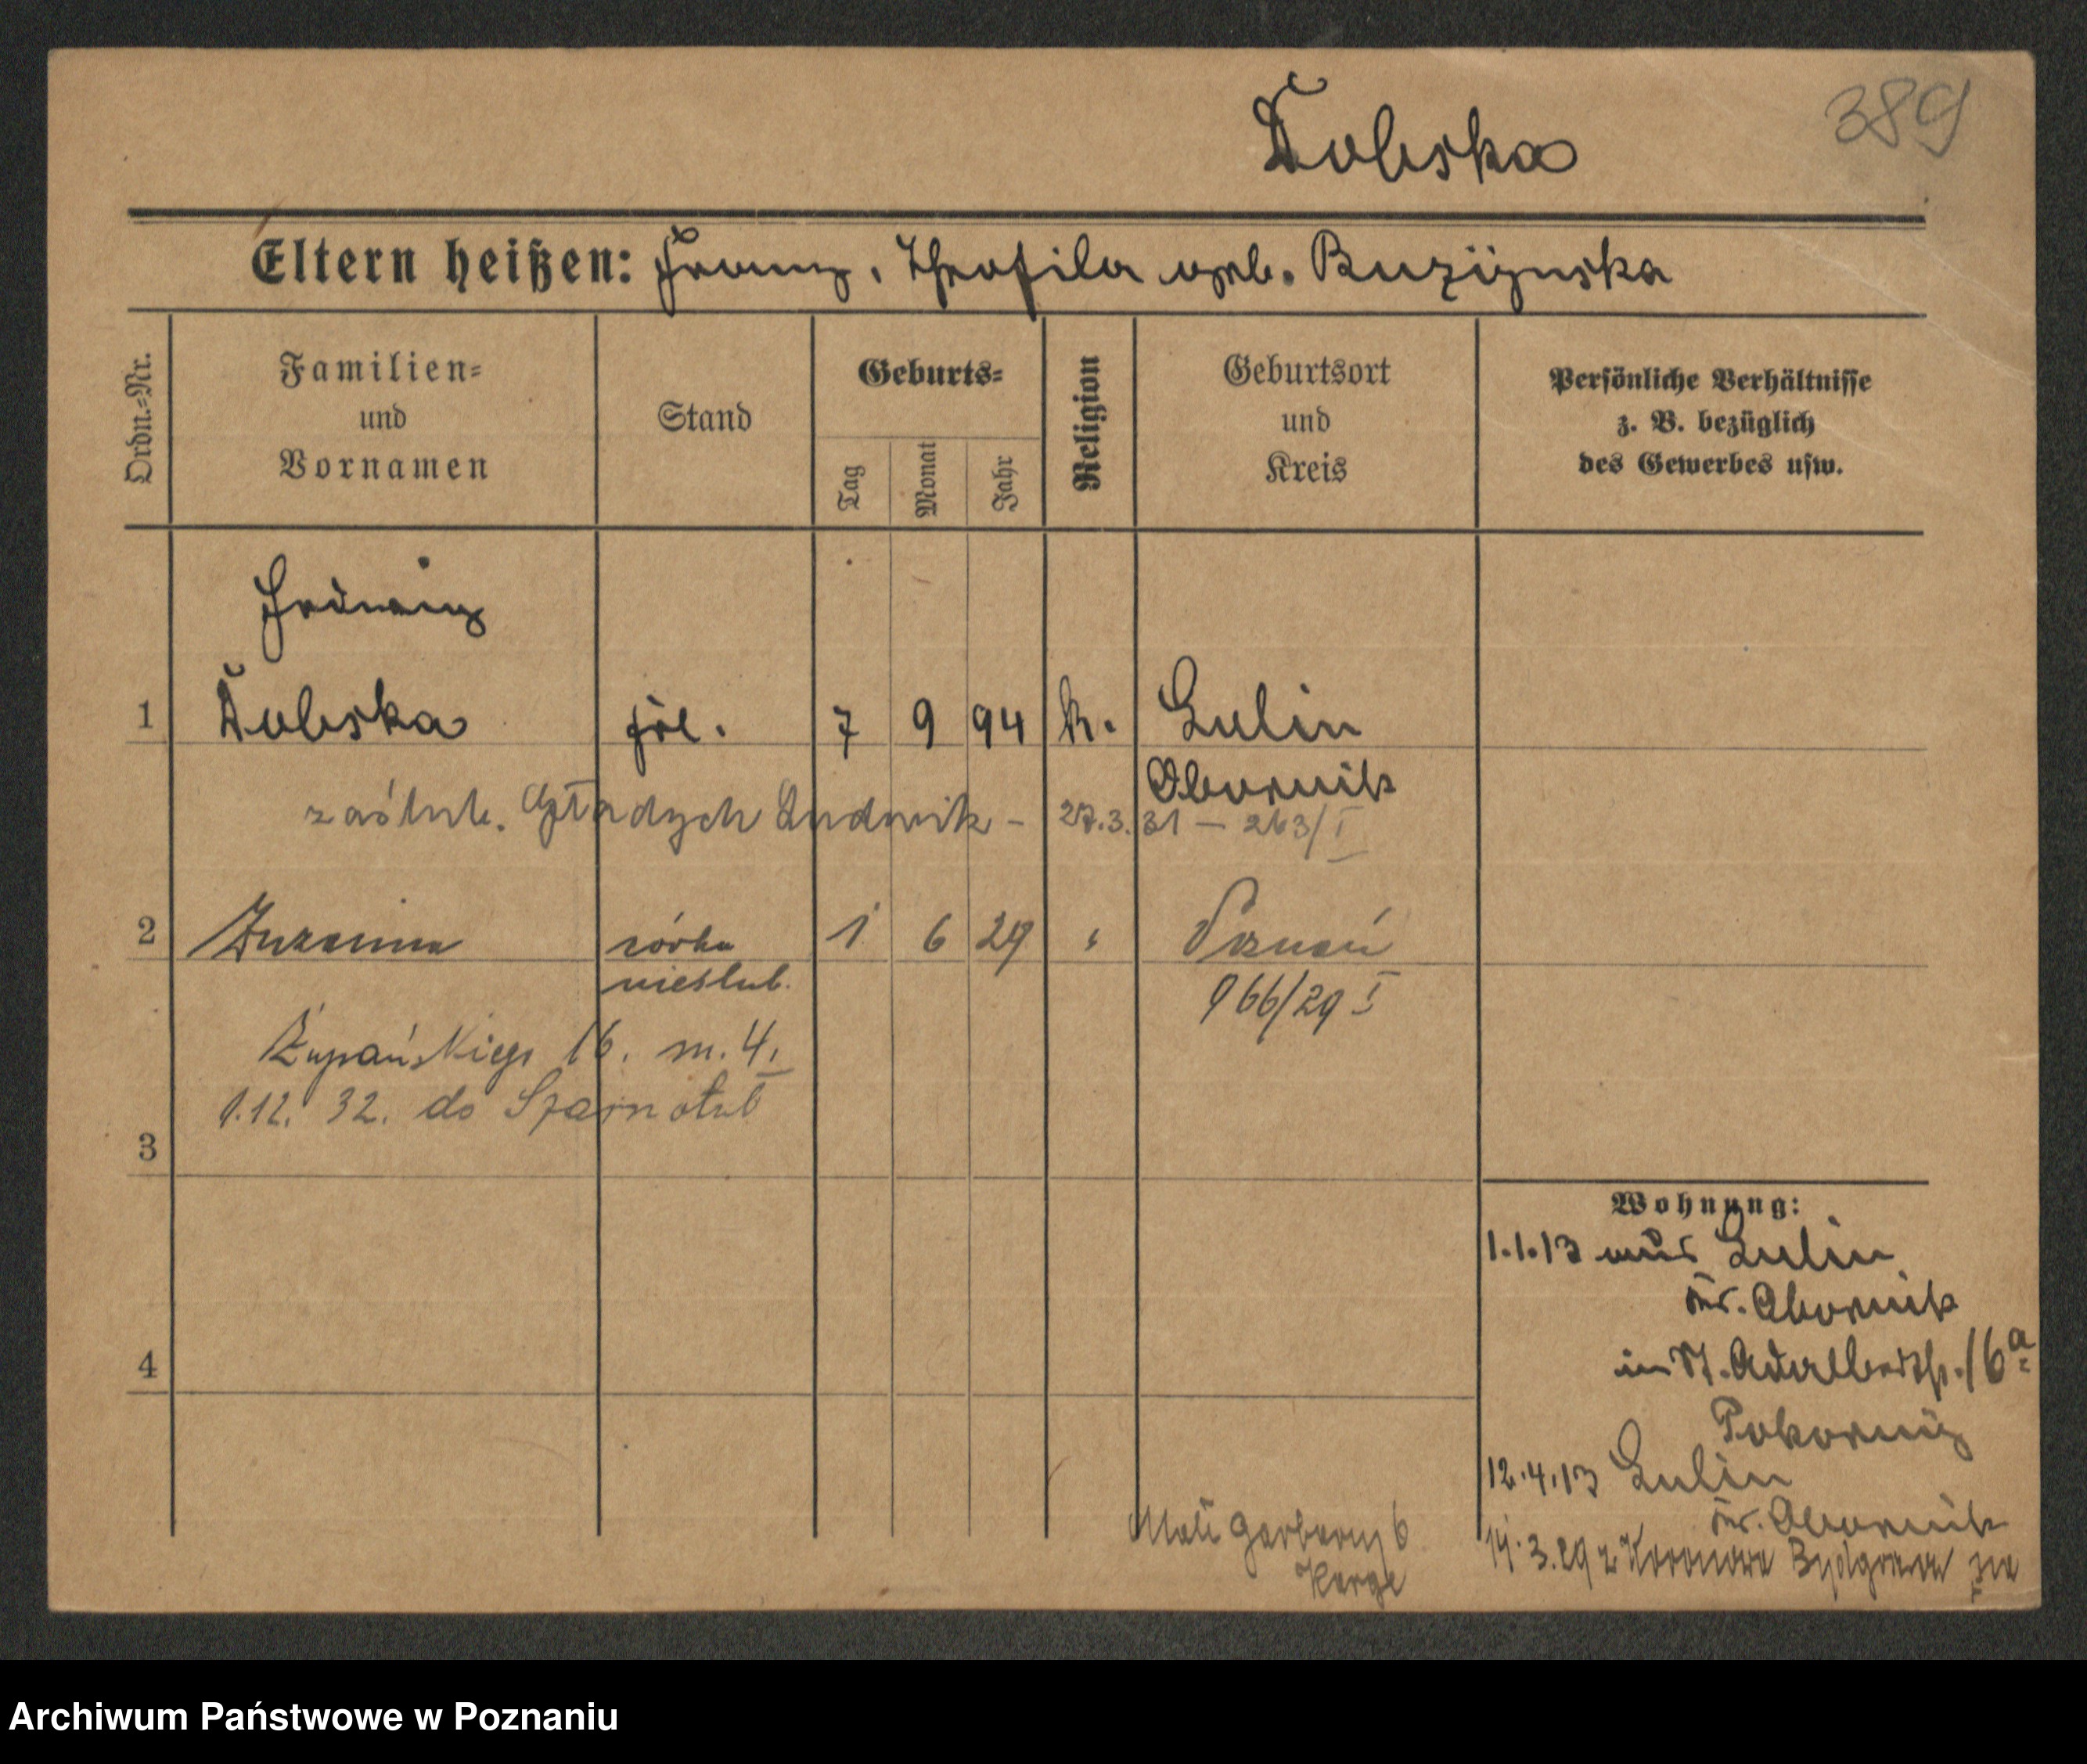 389
Dobska
Eltern heißen: Franz, Theofila geb. Ruzizinska
Ordn.-Nr.
Familien-
und
Vornamen
Stand
Geburts-
Tag
Monat
Jahr
Religion
Geburtsort
und
Kreis
Persönliche Verhältnisse
z. B. bezüglich
des Gewerbes usw.
Hedwig
1 Dobska 7 9 94 k. Lulin
Obornik
zaślub. Gładych Ludwik - 27.3.31 - 263/I
2 Zuzanna córka 1 6 29 " Poznań
nieślub.
966/29 I
Żupańskiego 16. m. 4.
1.12. 32. do Szamotuł
3
Wohnung:
1.1.13 aus Lulin
Kr. Obornik
4
in St. Adalbertstr. 16a
Pokorny
12.4.13 Lulin
Kr. Obornik
Małe Garbary 6
14.3.29 z Koronowa Bydgoszcz